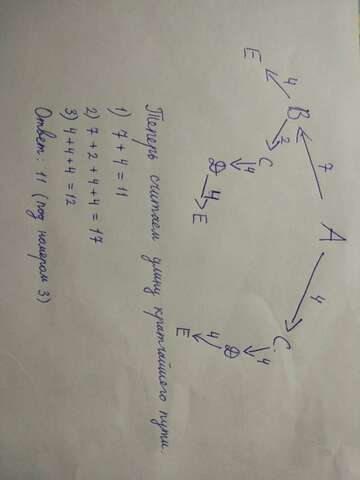 A
7 4
B C
4 2 4
E C D
4 4
D E
4
E
Теперь считаем длину кратчайшего пути.
1) 7 + 4 = 11
2) 7 + 2 + 4 + 4 = 17
3) 4 + 4 + 4 = 12
Ответ: 11 (под номером 3)